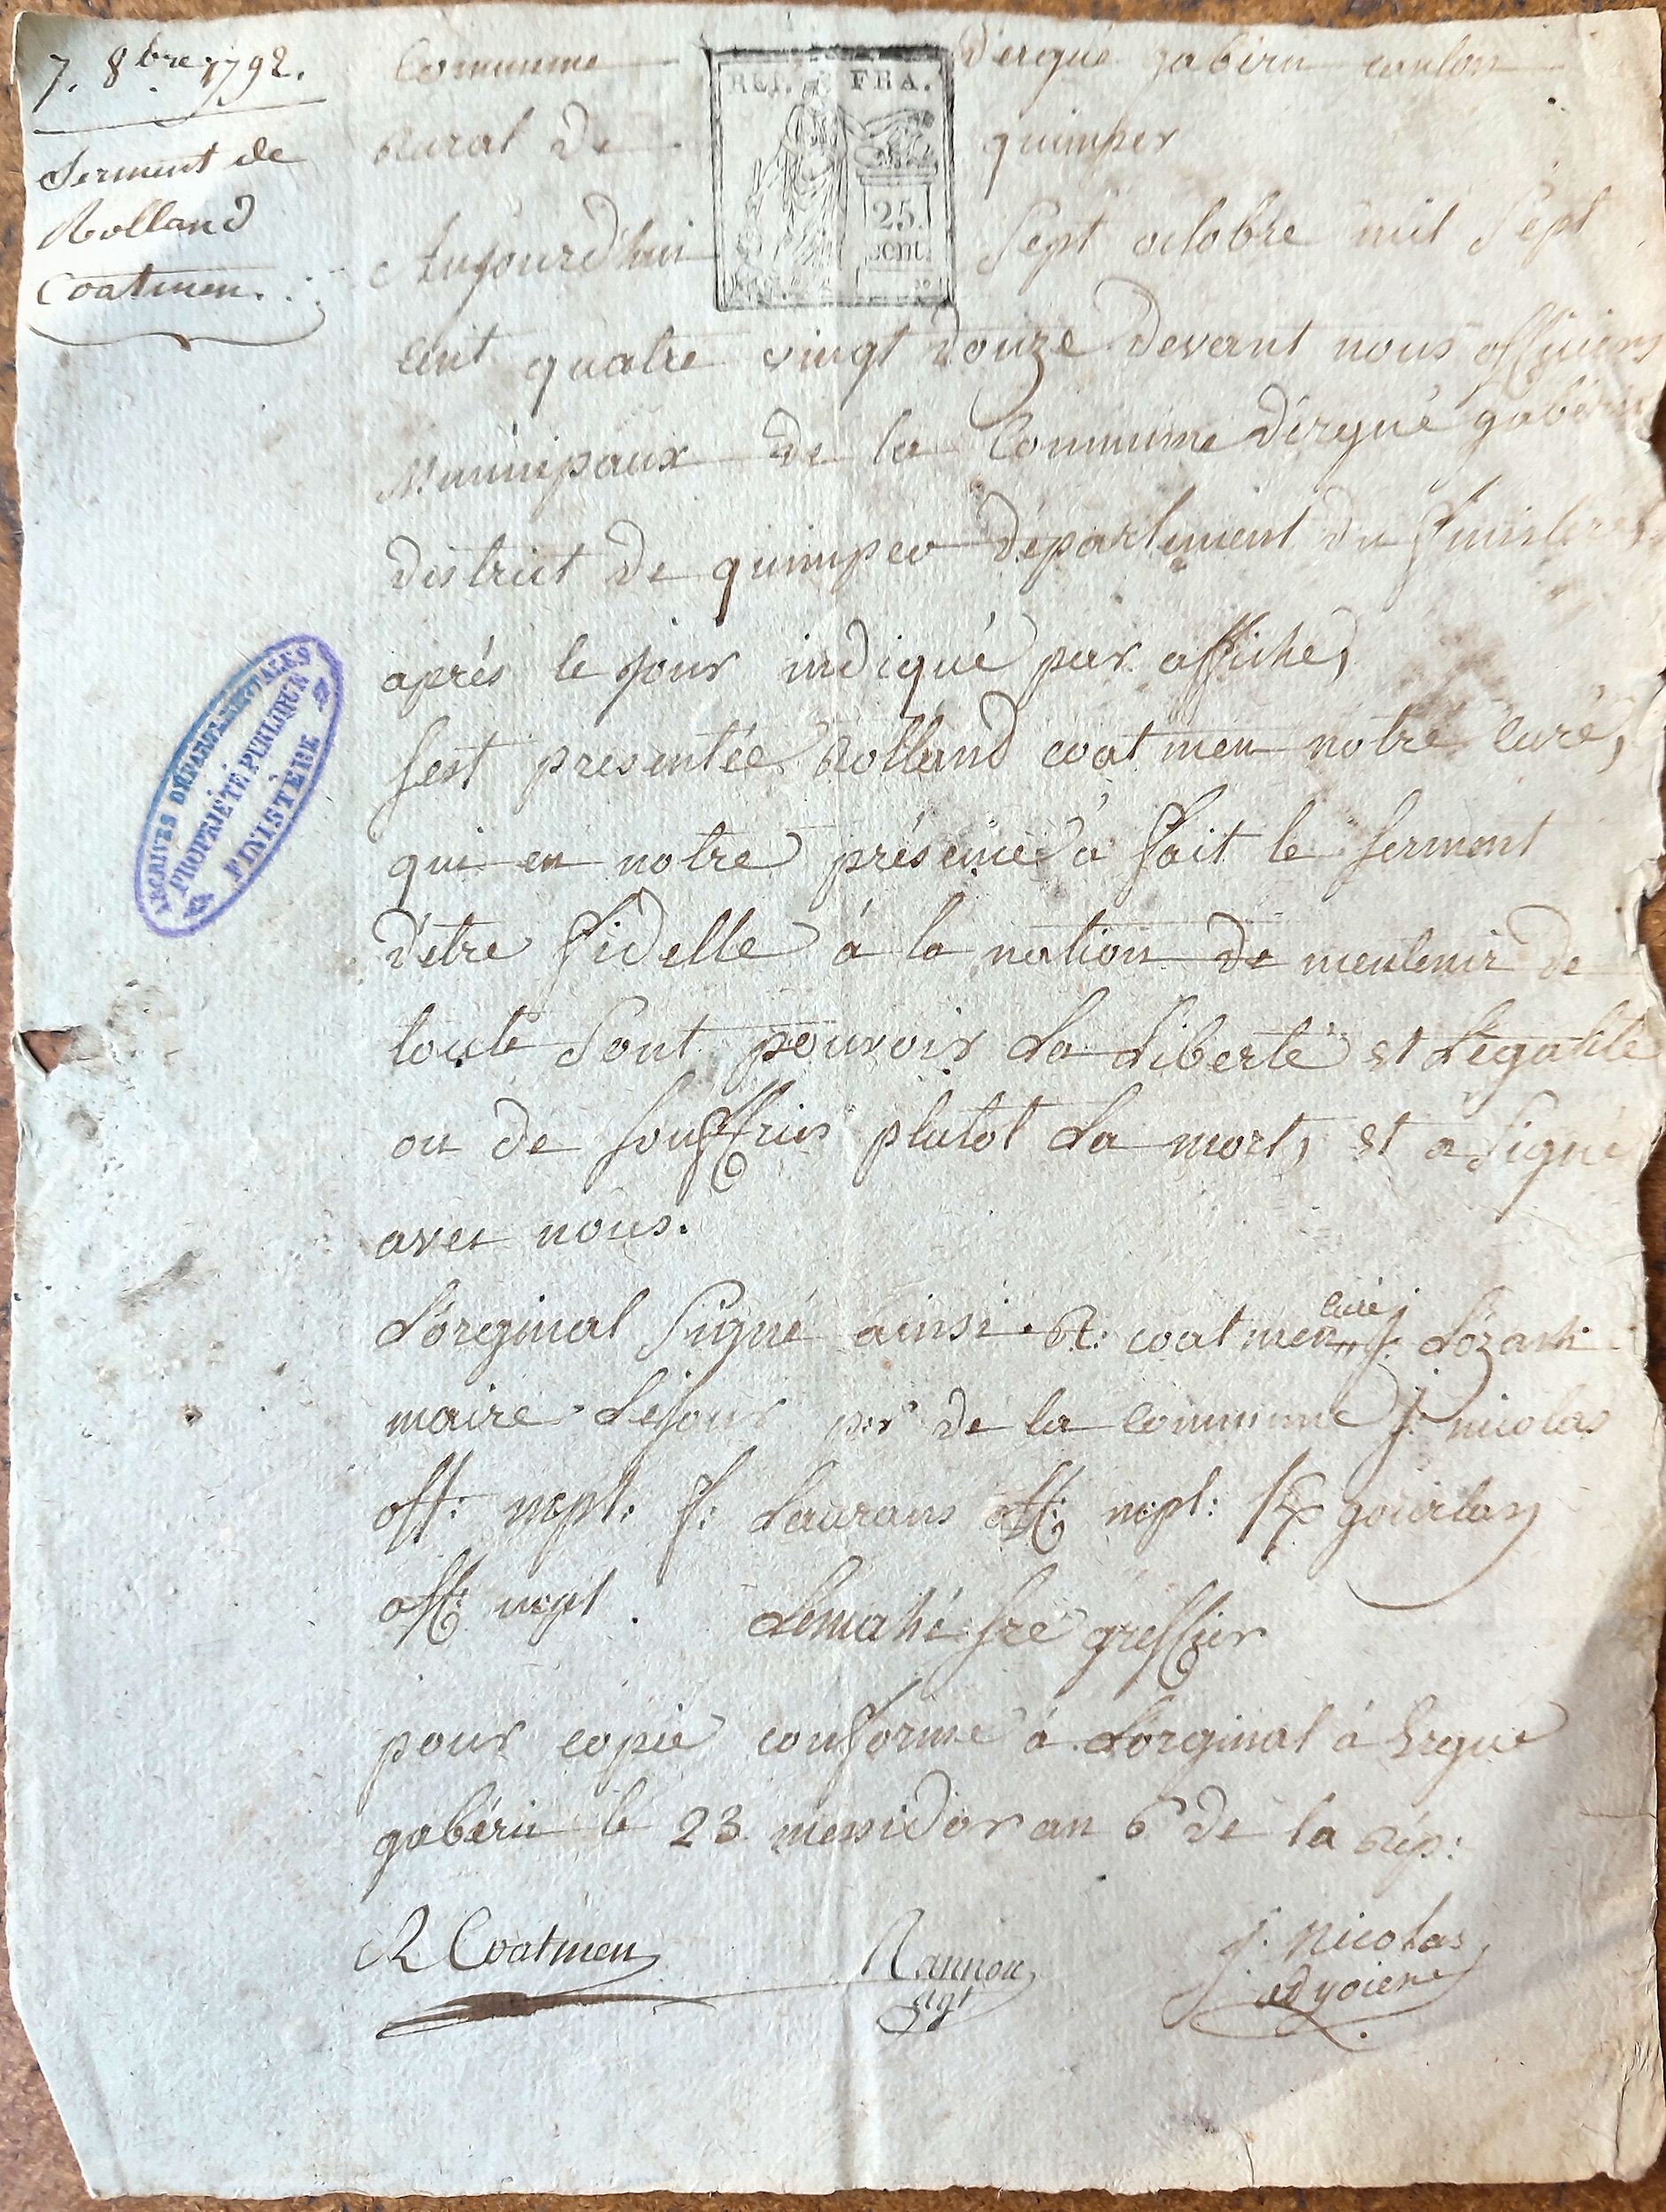 7. 8bre 1792.
Serment de
Rolland
Coatmen.
REP. FRA.
25.
cent.
Commune d'ergué gabéru canton
Rural de quimper
Aujourd'hui Sept octobre mil Sept
cent quatre vingt douze devant nous officiers
Municipaux de la Commune d'ergué gabéru
district de quimper département du finistere,
aprés le jour indiqué par affiche,
sest presentée Rolland coatmen notre curé,
qui en notre présence a fait le serment
d'etre fidelle à la nation de mentenir de
toute Sont pouvoir La Liberté et Légalité
ou de souffrir plutot La mort, et a Signé
avec nous.
L'oreginal Signé ainsi R: coatmen curé J: Lozach
maire Lejour pr de la commune J: nicolas
off: mpl: f: Laurans off: mpl: gourlay
off: mpl. Lemahé fre greffier
pour copie conforme à Lorginal à Ergué
gabéric le 23 messidor an 6 de la rép:
R Coatmen
Nannon
agt
J. Nicolas
adyoient
ARCHIVES DÉPARTEMENTALES
PROPRIÉTÉ PUBLIQUE
FINISTÈRE